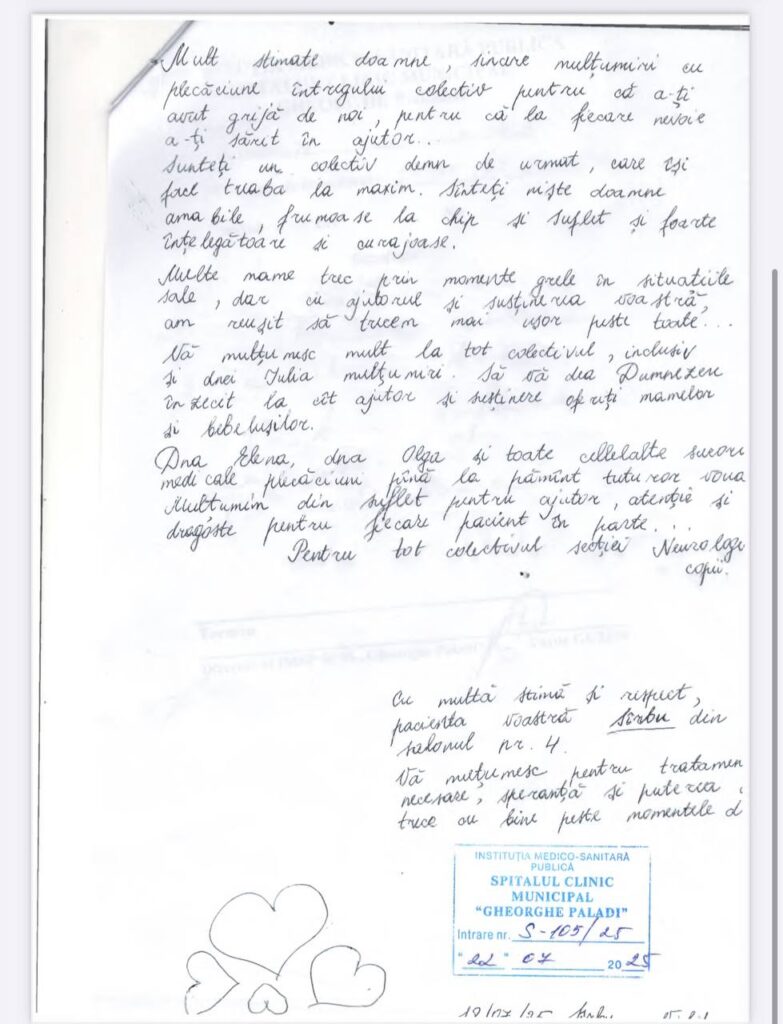 Mult stimate doamne, sincere mulțumiri cu
plecăciune întregului colectiv pentru că a-ți
avut grijă de noi, pentru că la fiecare nevoie
a-ți sărit în ajutor...
Sunteți un colectiv demn de urmat, care își
fact treaba la maxim. Sînteți niște doamne
amabile, frumoase la chip și suflet și foarte
înțelegătoare și curajoase.
Multe mame trec prin momente grele în situațiile
sale, dar cu ajutorul și susținerea voastră,
am reușit să trecem mai ușor peste toate...
Vă mulțumesc mult la tot colectivul, inclusiv
și dnei Iulia mulțumiri. Să vă dea Dumnezeu
înzecit la cît ajutor și susținere oferiți mamelor
și bebelușilor.
Dna Elena, dna Olga și toate cellelalte surori
medicale plecăciuni pînă la pămînt tuturor voua
Multumim din suflet pentru ajutor, atenție și
dragoste pentru fiecare pacient în parte...
Pentru tot colectivul secției Neurologi
copii.
Cu multă stimă și respect,
pacienta voastră Sîrbu din
salonul nr. 4.
Vă mulțumesc pentru tratamen
necesare, speranță și puterea
trece cu bine peste momentele d
INSTITUȚIA MEDICO-SANITARĂ
PUBLICĂ
SPITALUL CLINIC
MUNICIPAL
"GHEORGHE PALADI"
Intrare nr. S-105/25
"22" 07 2025